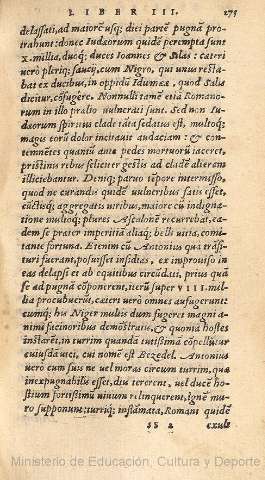 LIBER III. 275
delassati, ad maiorē usq; diei partē pugnā pro-
trahunt: donec Iudæorum quidē perempta sunt
x. millia, duoq; duces Ioannes & Silas: cæteri
uero pleriq; saucij, cum Nigro, qui unus resta-
bat ex ducibus, in oppidū Idumææ, quod Salis
dicitur, cōfugêre. Nonnulli tamē etiā Romano-
rum in illo prælio uulnerati sunt. Sed non Iu-
dæorum spiritus clade ista sedatus est, multoq;
magis eorū dolor incitauit audaciam: & con-
temnētes quantū ante pedes mortuorū iaceret,
pristinis rebus feliciter gestis ad cladē alteram
illiciebantur. Deniq; paruo tēpore intermisso,
quod ne curandis quidē uulneribus satis esset,
cūctisq; aggregatis uiribus, maiore cū indigna-
tione multoq; plures Ascalonē recurrebāt, ea-
dem se præter imperitiā aliaq; belli uitia, comi-
tante fortuna. Etenim cū Antonius qua trāsi-
turi fuerant, posuisset insidias, ex improviso in
eas delapsi et ab equitibus circūdati, prius quā
se ad pugnam cōponerent, iterū super VIII. mil-
lia procubuerūt, cæteri uero omnes aufugerunt:
cumq; his Niger multis dum fugeret magni a-
nimi facinoribus demōstratis, & quonia hostes
instarēt, in turrim quandā tutissimā cōpellūtur
cuiusdā uici, cui nomē est Bezedel. Antonius
uero cum suis ne uel moras circum turrim, quæ
inexpugnabilis esset, diu tererent, uel ducē ho-
stium fortissimū uiuum relinquerent, ignē mu-
ro supponunt: turriq; inflāmata, Romani quidē
ss 2 exul-
Ministerio de Educación, Cultura y Deporte